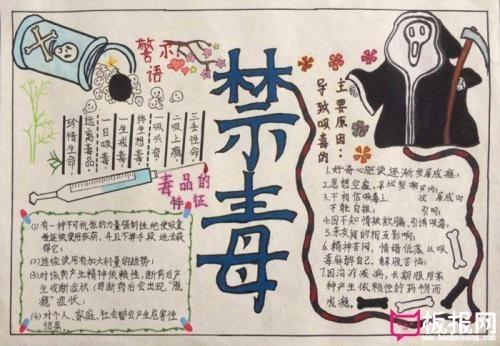 警示
语
珍惜生命
远离毒品
一日吸毒
一生戒毒
终生想毒
一吸就寄
二吸上瘾
三去性命
禁毒
毒品的
特征
(1)有一种不可抗拒的力量强制性地使吸食
者连续使用该药,并且不择手段地去获
得它;
(2)连续使用有加大剂量的趋势;
(3)对该药产生精神依赖性,断药后产
生戒断症状(即断药后会出现"脱
瘾"症状;
(4)对个人、家庭、社会都会产生危害性
结果。
主要原因:
导致吸毒的
1.好奇心驱使,逐渐发展成瘾;
2.思想空虚,寻
3.不相信吸毒上
不能自拔;
4.因不知情被欺骗,引诱吸毒;
5.亲友间的相互影响;
6.精神苦闷,情绪低落,从吸
毒麻醉自己,解脱苦恼;
7.因治疗疾病,长期服用某
种产生依赖性的药物而
成瘾。
板报网
www.banbaowang.com